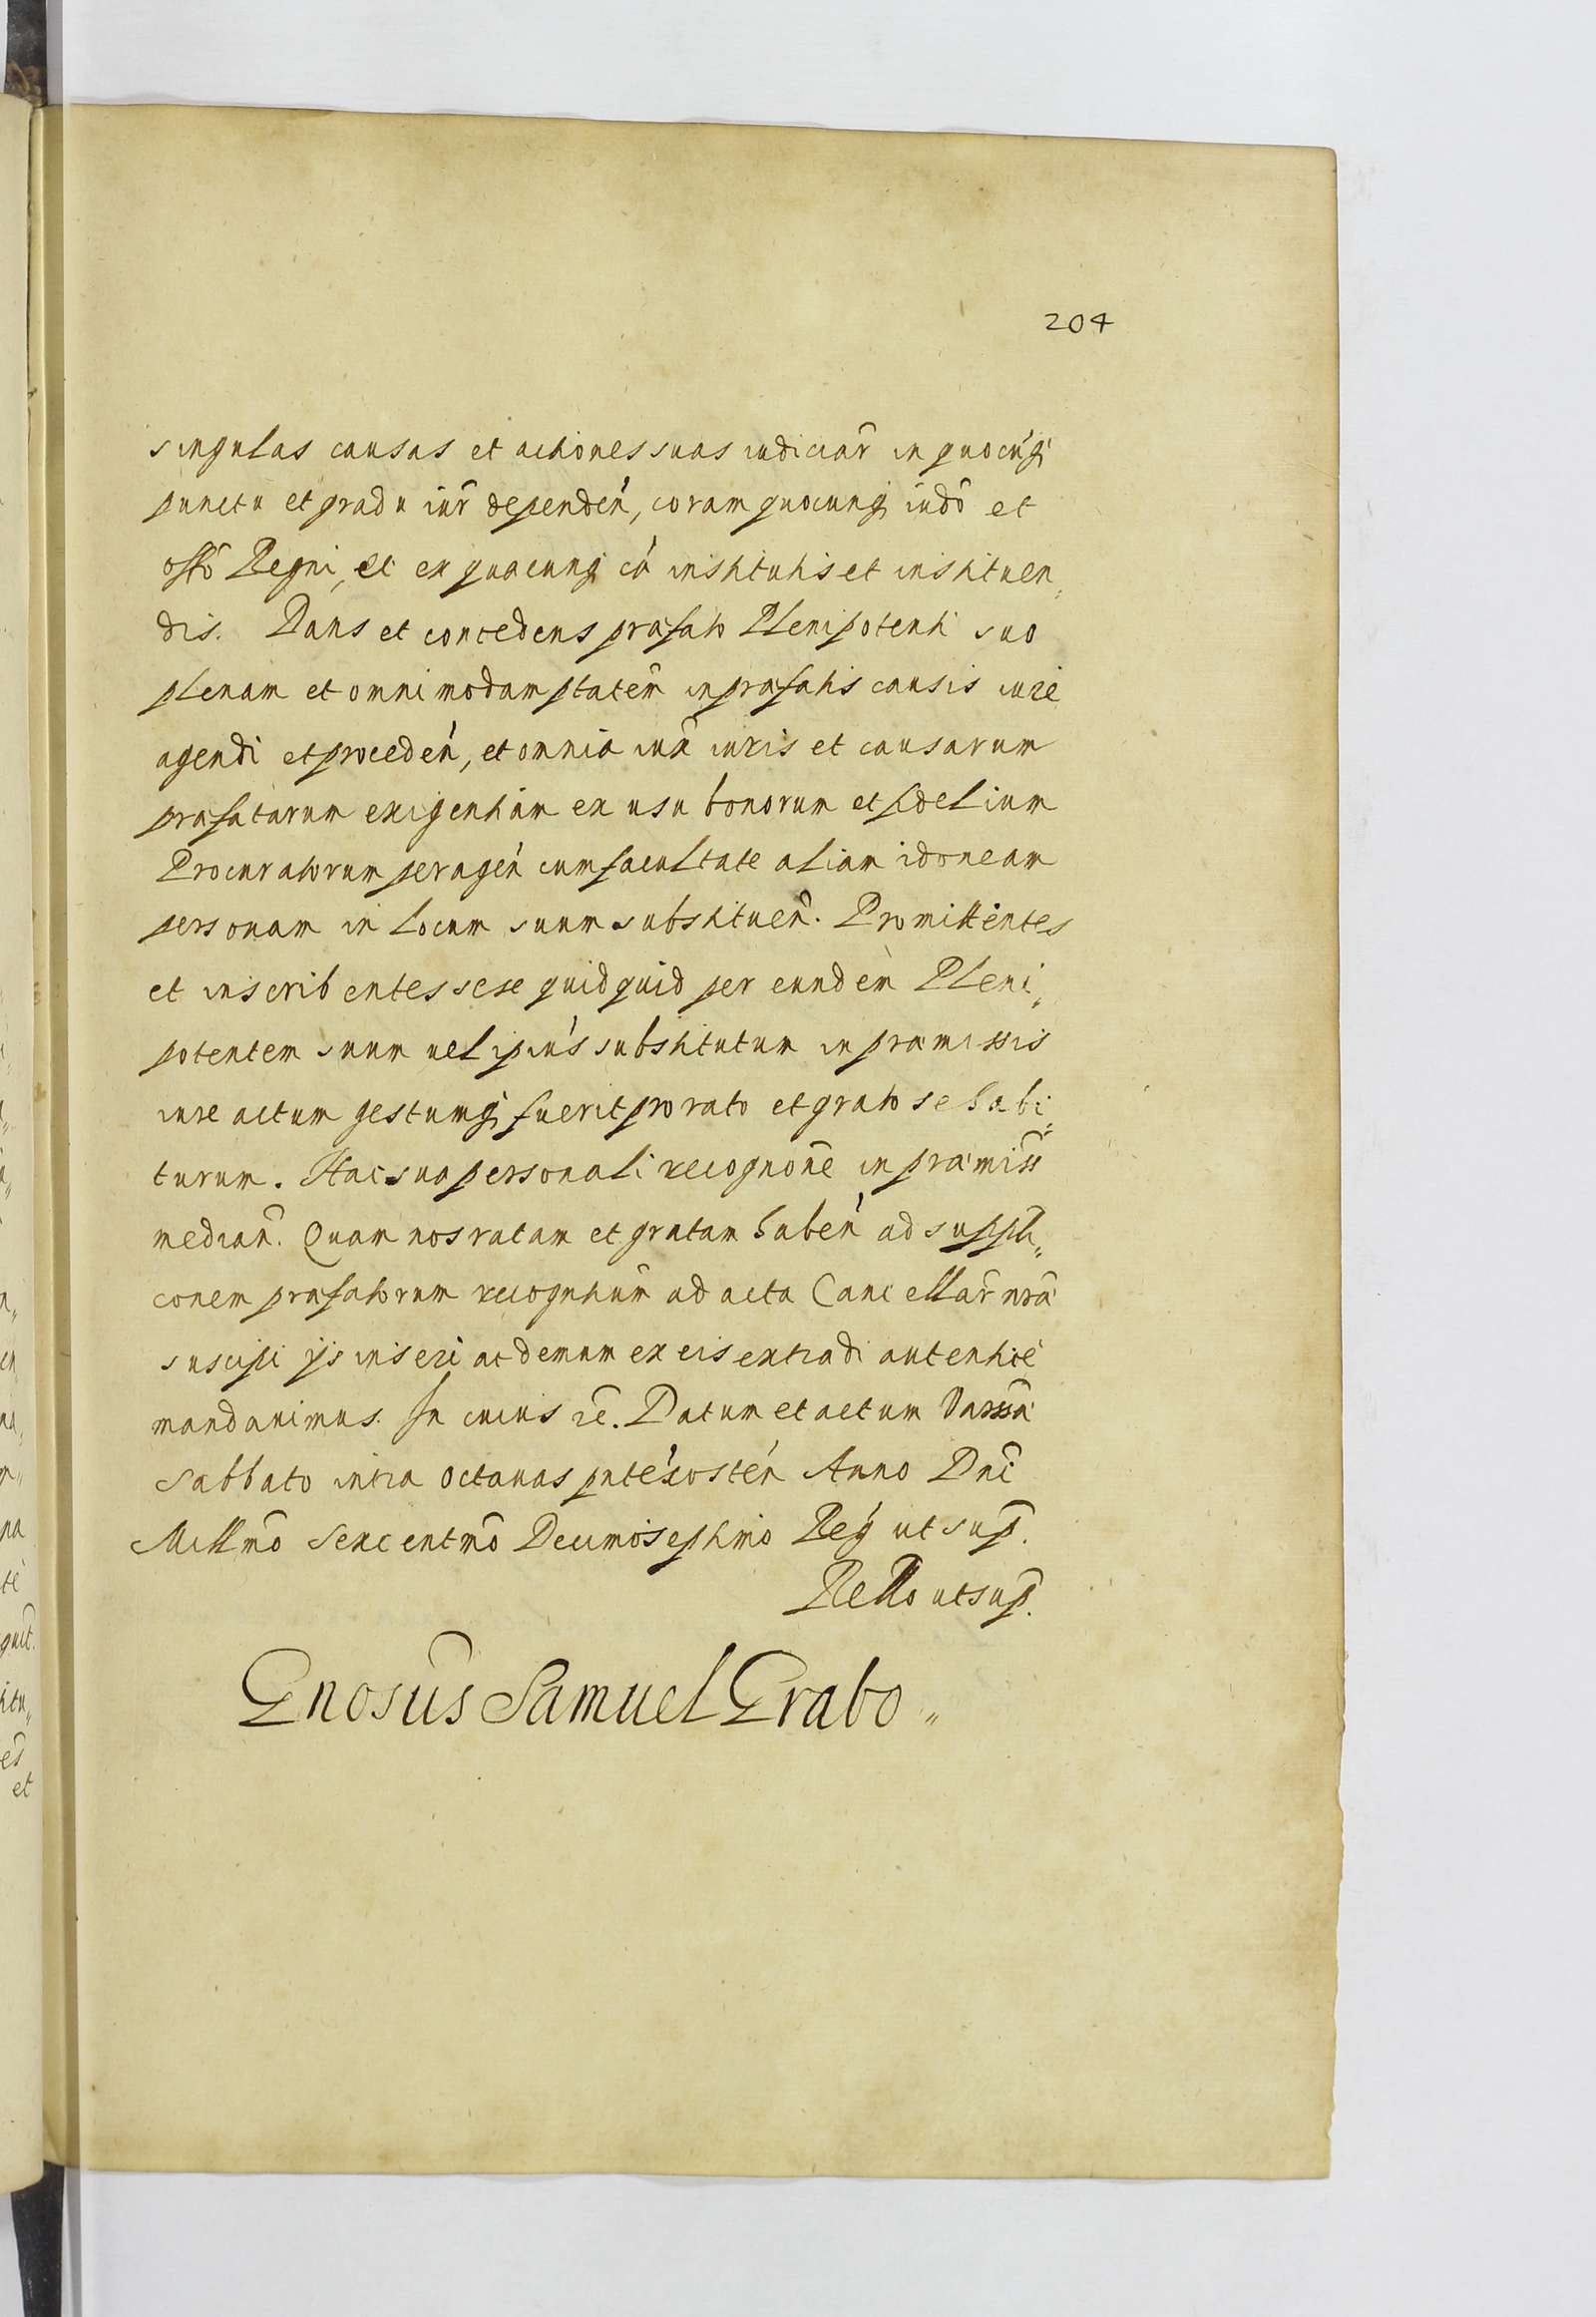 204
singulas causas et actiones suas iudiciar̃ in quocúq́
punctu et gradu iur̃ dependeń, coram quocunq́ iudõ et
offõ Regni, et ex quacunq́ cá institutis et instituen„
dis. Dans et concedens præfato Plenipotenti suo
plenam et omnimodam ptatem̃ in præfatis causis iure
agendi et procedeń, et omnia iux̃ iuris et causarum
præfatarum exigentiam ex usu bonorum et fidelium
Procuratorum perageń cum facultate aliam idoneam
personam in locum suum substitueñ. Promittentes
et inscribentes sese quidquid per eundem Pleni„
potentem suum uel ipiús substitutum in præmissis
iure actum gestumq́ fuerit pro rato et grato se habi„
turum. Hac sua personali recognone in præmiss̃
median̄. Quam nos ratam et gratam habeń ad suppli„
conem præfatorum recognitium̃ ad acta Cancellar̃ nrã
suscipi ijs inseri ac demum ex eis extradi autentice
mandauimus. In cuius rẽ. Datum et actum Varssã
Sabbato intra Octauas pntecosteń Anno Dnĩ
Millmõ Sexcentmõ Decimoseptimo Reǵ ut sup̃.
Rello ut sup̃.
Gnosus̃ Samuel Grabo„